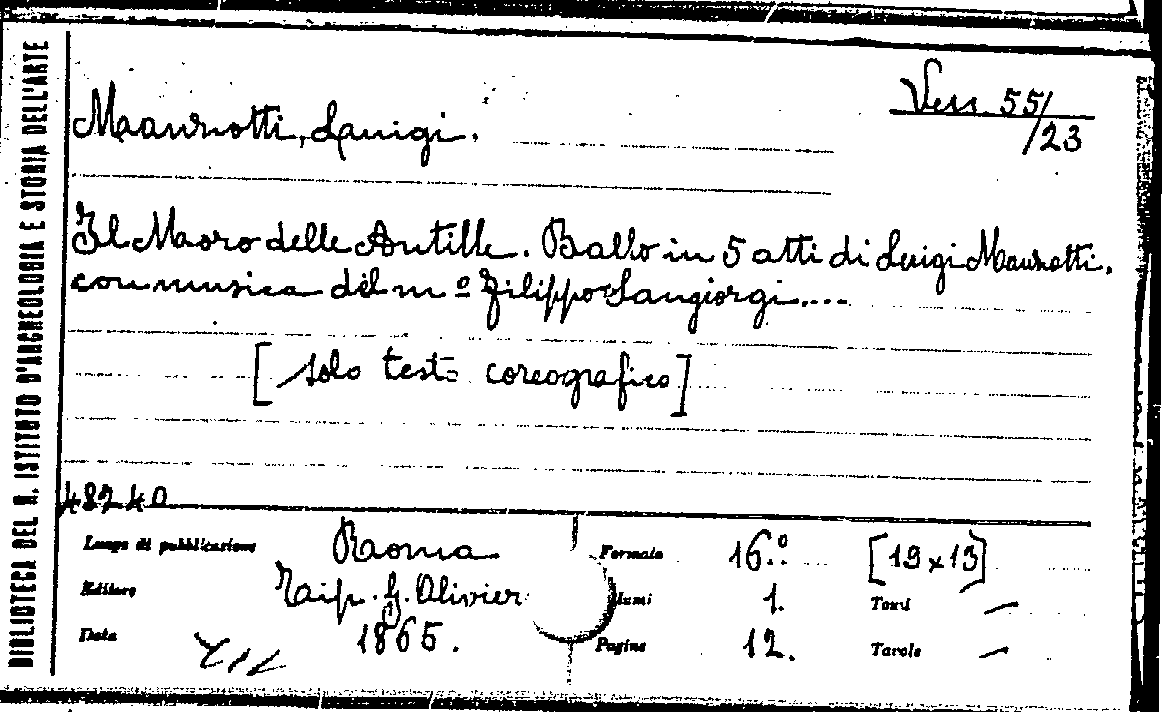 BIBLIOTECA DEL R. ISTITUTO D'ARCHEOLOGIA E STORIA DELL'ARTE
Manzotti, Luigi.
Ven. 55/
/23
Il Moro delle Antille. Ballo in 5 atti di Luigi Manzotti,
con musica del mº Filippo Sangiorgi....
[solo testo coreografico]
48240
Luogo di pubblicazione Roma Formato 16.º [19x13]
Editore Tip. G. Olivieri Volumi 1. Tomi —
Data 1865. Pagine 12. Tavole —